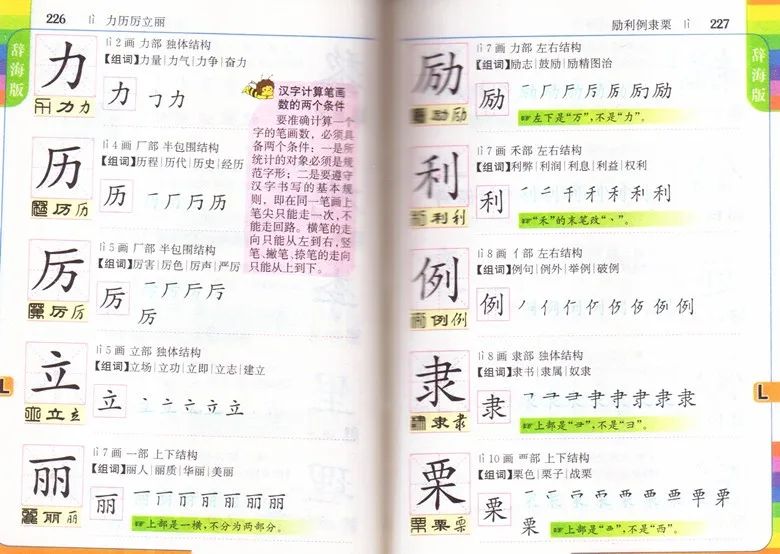 226 lì 力历厉立丽
辞海版
力 lì 2画 力部 独体结构
【组词】力量|力气|力争|奋力
力 ㇆力
力力
历 lì 4画 厂部 半包围结构
【组词】历程|历代|历史|经历
历 一厂历历
历历
厉 lì 5画 厂部 半包围结构
【组词】厉害|厉色|厉声|严厉
厉 一厂厂厉
厉
厉厉
立 lì 5画 立部 独体结构
【组词】立场|立功|立即|立志|建立
立
立立
丽 lì 7画 一部 上下结构
【组词】丽人|丽质|华丽|美丽
丽
丽丽
上部是一横,不分为两部分。
汉字计算笔画
数的两个条件
要准确计算一个
字的笔画数,必须具
备两个条件:一是所
统计的对象必须是规
范字形;二是要遵守
汉字书写的基本规
则,即在同一笔画上
笔尖只能走一次,不
能走回路。横笔的走
向只能从左到右,竖
笔、撇笔、捺笔的走向
只能从上到下。
L
励利例隶栗 lì 227
辞海版
励 lì 7画 力部 左右结构
【组词】励志|鼓励|励精图治
励
励励
左下是“万”,不是“力”。
利 lì 7画 禾部 左右结构
【组词】利弊|利润|利息|利益|权利
利
利利
“禾”的末笔改“丶”。
例 lì 8画 亻部 左右结构
【组词】例句|例外|举例|破例
例
例例
隶 lì 8画 隶部 独体结构
【组词】隶书|隶属|奴隶
隶
隶隶
上部是“⺕”,不是“彐”。
栗 lì 10画 覀部 上下结构
【组词】栗色|栗子|战栗
栗
栗
栗栗
上部是“覀”,不是“西”。
L